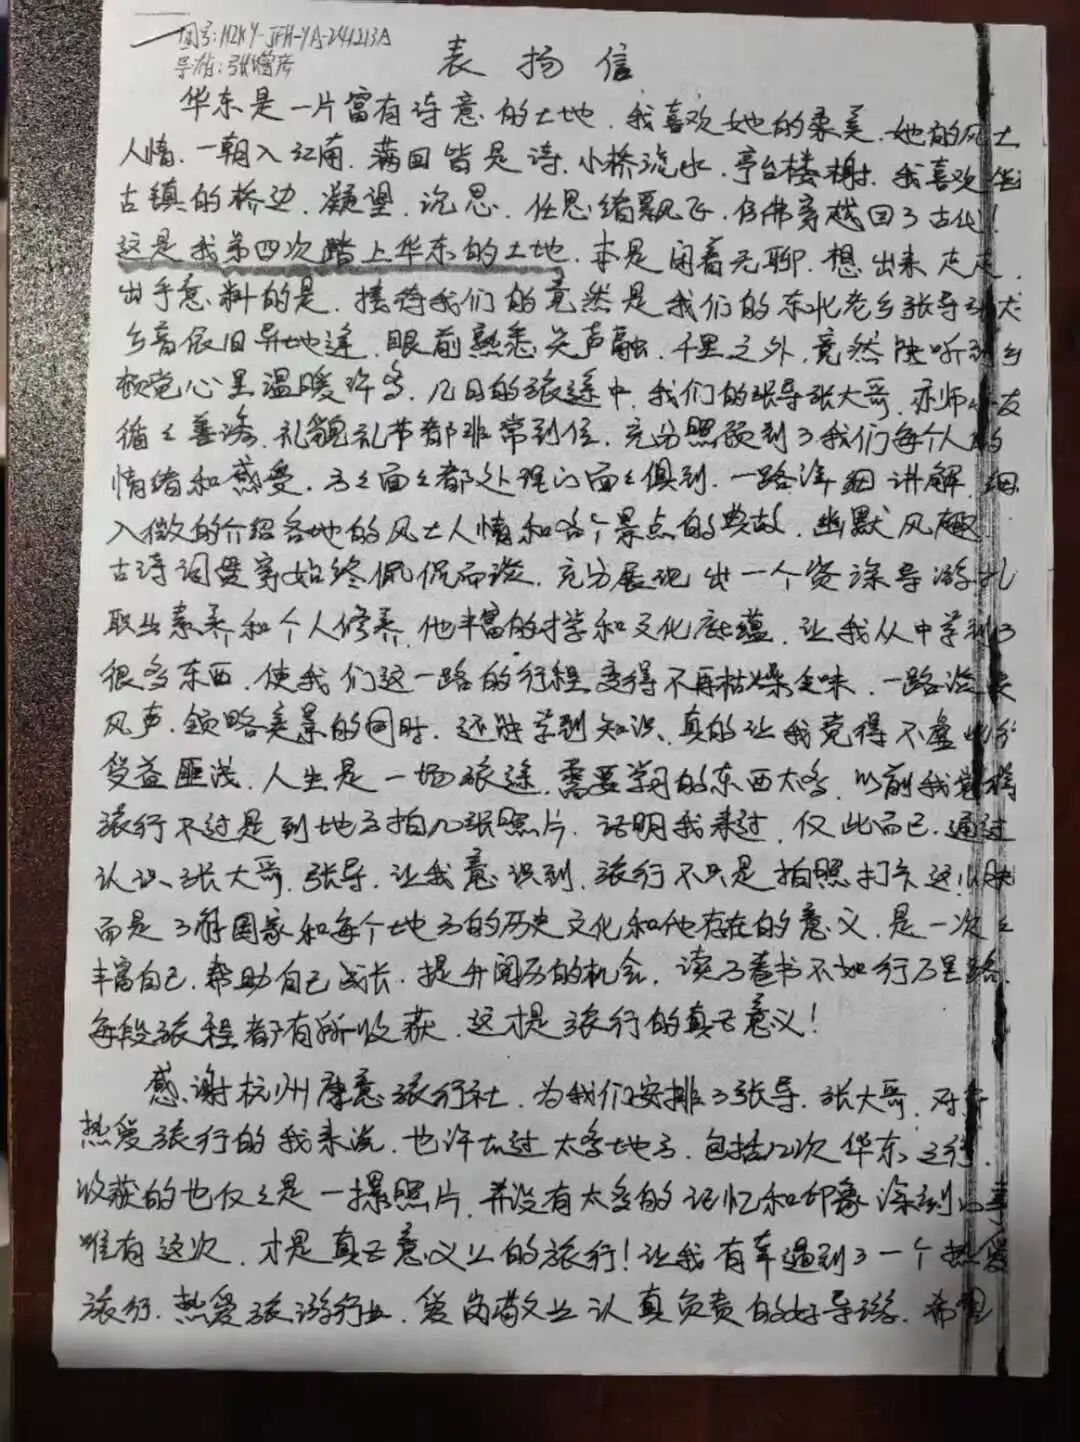 团号:HZKY-JFH-YA-241213A
导游:张增彦
表扬信
华东是一片富有诗意的土地，我喜欢她的柔美，她的风土
人情，一朝入江南，满目皆是诗，小桥流水，亭台楼榭，我喜欢在
古镇的桥边，凝望，沉思，任思绪飘飞，仿佛穿越回了古代！
这是我第四次踏上华东的土地，本是闲着无聊，想出来走走，
出乎意料的是，接待我们的竟然是我们的东北老乡张导张大
乡音依旧异地逢，眼前熟悉笑声融，千里之外，竟然能听到乡
顿觉心里温暖许多，几日的旅途中，我们的张导张大哥，亦师亦友
循循善诱，礼貌礼节都非常到位，充分照顾到了我们每个人的
情绪和感受，方方面面都处理的面面俱到，一路详细讲解，细
入微的介绍各地的风土人情和各个景点的典故，幽默风趣
古诗词贯穿始终侃侃而谈，充分展现出一个资深导游
职业素养和个人修养，他丰富的才学和文化底蕴，让我从中学到了
很多东西，使我们这一路的行程变得不再枯燥乏味，一路
风声，领略美景的同时，还能学到知识，真的让我觉得不虚此行
受益匪浅，人生是一场旅途，需要学习的东西太多，以前我觉得
旅行不过是到地方拍几张照片，证明我来过，仅此而已，通过
认识张大哥，张导，让我意识到，旅行不只是拍照打卡这
而是了解国家和每个地方的历史文化和他存在的意义，是一次次
丰富自己，帮助自己成长，提升阅历的机会，读万卷书不如行万里路，
每段旅程都有所收获，这才是旅行的真正意义！
感谢杭州康意旅行社，为我们安排了张导，张大哥，对于
热爱旅行的我来说，也许去过太多地方，包括几次华东之行，
收获的也仅仅是一摞照片，并没有太多的记忆和印象深刻的
唯有这次，才是真正意义上的旅行！让我有幸遇到了一个热爱
旅行，热爱旅游行业，爱岗敬业认真负责的好导游，希望